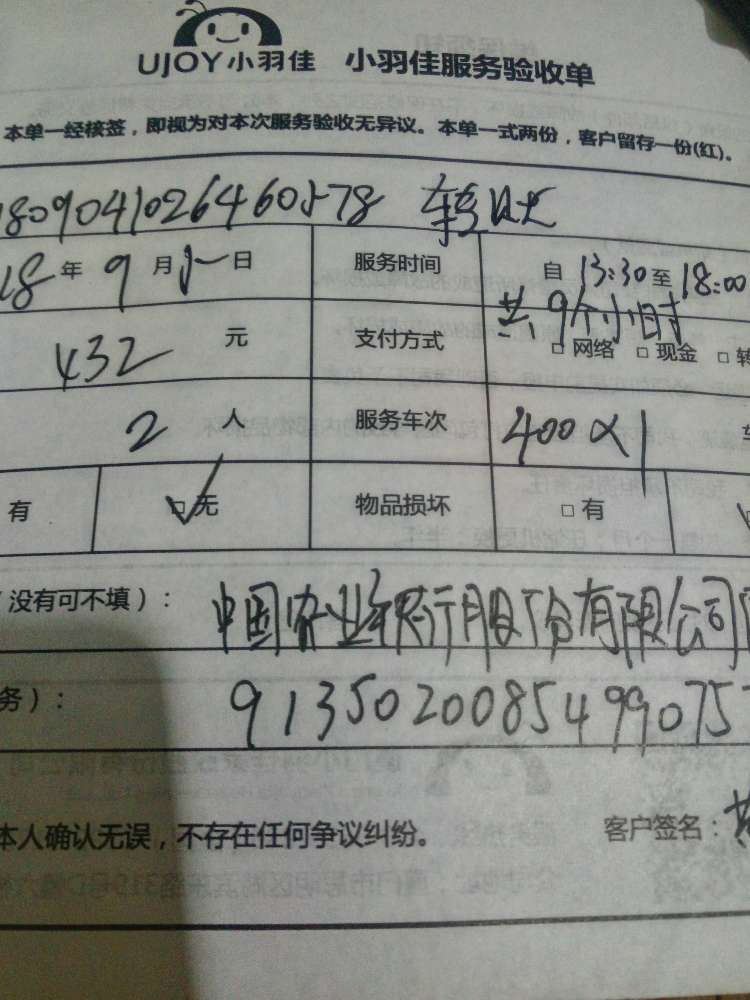 UJOY小羽佳 小羽佳服务验收单
本单一经核签，即视为对本次服务验收无异议。本单一式两份，客户留存一份(红)。
1809041026460578
18年9月5日 服务时间 自13:30至18:00
共9个小时
432元 支付方式 □网络 □现金 □转
2人 服务车次 400×1
有 □无 物品损坏 □有
没有可不填）： 中国农业银行股份有限公司
务）： 91350200854990757
本人确认无误，不存在任何争议纠纷。 客户签名：